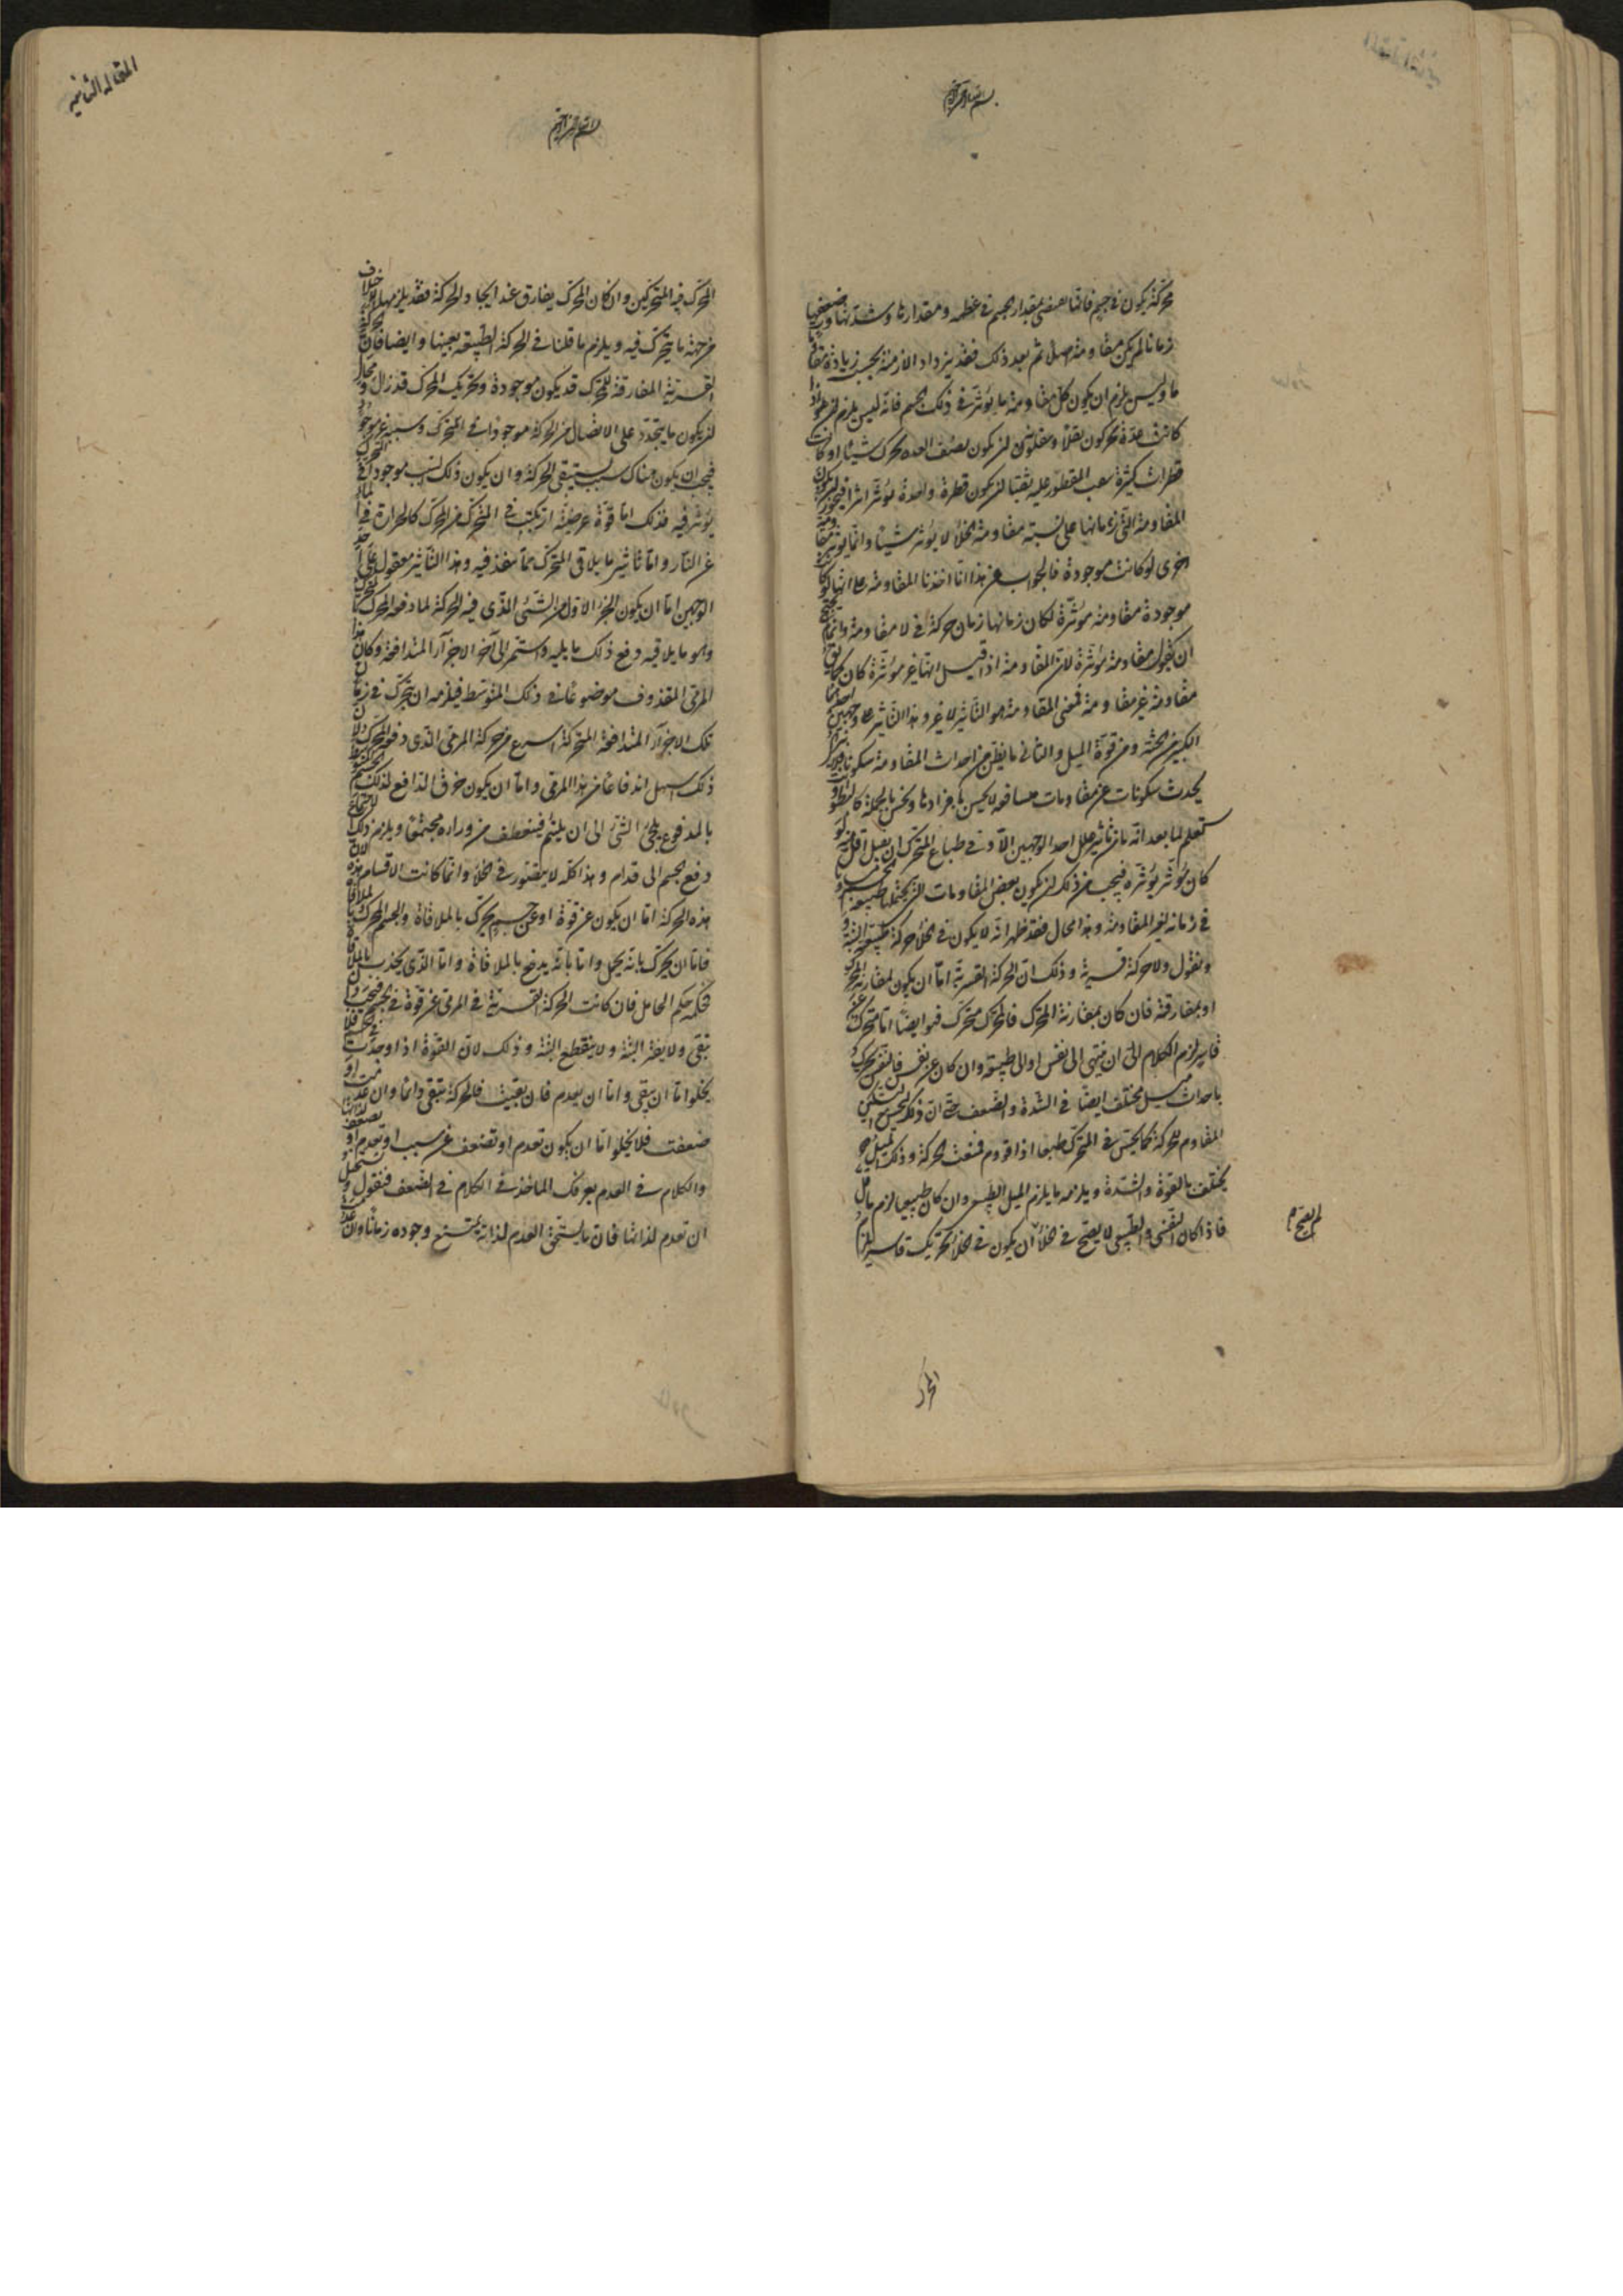 بسم الله الرحمن الرحيم
محركة يكون في جسم فانما يقتضي بمقدار الجسم في عظمه ومقدارها وشدتها وضعفها
زمانا لم يكن مقاومة اصلا ثم بعد ذلك فقد يزداد الازمنة بحسب زيادة مقاومة
ما وليس يلزم ان يكون كل مقاومة ما يؤثر في ذلك الجسم فانه ليس يلزم اذا
كانت عدة يحركون ثقلا وينقلونه ان يكون نصف العدة يحرك شيئا او كانت
قطرات كثيرة تثقب المقطور عليه ثقبا ان يكون قطرة واحدة تؤثر اثرا فيجوز ان يكون
المقاومة التي زمانها على نسبة مقاومة الخلأ لا يؤثر شيئا وانما يؤثر مقاومة
اخرى لو كانت موجودة فالجواب عن هذا انا اخذنا المقاومة على انها لو كانت
موجودة مقاومة مؤثرة لكان زمانها زمان حركة في لا مقاومة وانما
ان يقول مقاومة مؤثرة لان المقاومة اذا قيل انها غير مؤثرة كان كما يقال
مقاومة غير مقاومة فمعنى المقاومة هو التأثير لا غير وهذا التأثير على وجهين احدهما
الكسر من الحمية ومن قوة الميل والثاني ما يظن من احداث المقاومة سكونا
يحدث سكونات عن مقاومات متتالية لا يحس بافرادها ويحس بالجملة كالبطؤ
ستعلم لما بعد انه ما من تأثير على احد الوجهين الا وفي طباع المتحرك ان يقبل اقل منه لو
كان مؤثر يؤثره فيجب من ذلك ان يكون بعض المقاومات التي يحتملها طبيعة الجسم
في زمانه لغير المقاومة وهذا محال فقد ظهر انه لا يكون في الخلأ حركة طبيعية البتة
ونقول ولا حركة قسرية وذلك ان الحركة القسرية اما ان يكون بمقارنة المحرك
او بمفارقته فان كان بمقارنة المحرك فالمحرك متحرك فهو ايضا اما متحرك عن
قاسر لزم الكلام الى ان ينتهي الى نفس او الى طبيعة وان كان عن نفس فالنفس يحرك
باحداث ميل مختلف ايضا في الشدة والضعف حتى ان ذلك يحس في التسكين
المقاوم للحركة كما يحس في المتحرك طبعا اذا قووم فمنعت الحركة وذلك الميل
يختلف بالقوة والشدة ويلزمه ما يلزم الميل الطبيعي وان كان طبيعيا لزم ما قيل
فاذا كان النفسي والطبيعي لا يصح في الخلأ ان يكون في الخلأ تحريك قاسر يلزم
لم يصح
المحرك
المقالة الثانية
بسم الله الرحمن الرحيم
المحرك فيه المتحركين وان كان المحرك يفارق عند ايجاد الحركة فقد يلزمها الخلاف
من جهة ما يتحرك فيه ويلزم ما قلنا في الحركة الطبيعية بعينها وايضا فان الحركة
القسرية المفارقة للمحرك قد يكون موجودة وتحريك المحرك قد زال ومحال
ان يكون ما يتجدد على الاتصال من الحركة موجودا في المتحرك وسببه غير موجود
فيجب ان يكون هناك سبب يستبقي الحركة وان يكون ذلك السبب موجودا في المتحرك
يؤثر فيه فذلك اما قوة عرضية ارتبكت في المتحرك من المحرك كالحرارة في الماء
عن النار واما تأثير ما يلاقي المتحرك مما ينفذ فيه وهذا التأثير معقول على احد
الوجهين اما ان يكون الجزء الاول من الشئ الذي فيه الحركة لما دفعه المحرك
وهو ما يلاقيه دفع ذلك ما يليه واستمر الى آخر الاجزآء المتدافعة وكان هذا
المرمى المقذوف موضوعا في ذلك المتوسط فيلزمه ان يتحرك في زمان
تلك الاجزآء المتدافعة المتحركة اسرع من حركة المرمى الذي دفعه المحرك لان
ذلك اسهل اندفاعا من هذا المرمى واما ان يكون خرق الدافع لذلك الجسم المتوسط
بالمدفوع يلجئ الشئ الى ان يلتئم فينعطف من ورائه مجتمعا ويلزم ذلك الاجتماع
دفع الجسم الى قدام وهذا كله لا يتصور في الخلأ وانما كانت الاقسام هذه لان
هذه الحركة اما ان يكون عن قوة او عن جسم يحرك بالملاقاة والجسم المحرك بالملاقاة
فاما ان يحرك بانه يحمل واما بانه يدفع بالملاقاة واما الذي يجذب بالملاقاة
فحكمه حكم الحامل فان كانت الحركة القسرية في المرمى عن قوة في الجسم فيجب ان
تبقى ولا يفتر البتة ولا ينقطع البتة وذلك لان القوة اذا وجدت في الجسم فلا
يخلوا اما ان يبقى واما ان يعدم فان بقيت فالحركة تبقى دائما وان عدمت او
ضعفت فلا يخلوا اما ان يكون تعدم او تضعف عن سبب او تعدم او تضعف لذاتها
والكلام في العدم يعرفك الماخذ في الكلام في الضعف فنقول ويستحيل
ان تعدم لذاتها فان ما يستحق العدم لذاته يمتنع وجوده زمانا وان عدمت